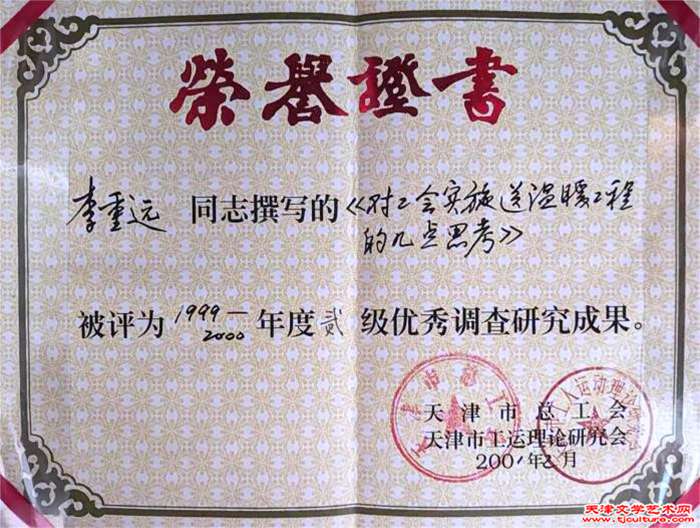 榮譽證書
李重远 同志撰写的《对工会实施送温暖工程
的几点思考》
被评为 1999—2000 年度贰 级优秀调查研究成果。
天津市总工会
天津市工运理论研究会
2001年2月
天津文学艺术网
www.tjculture.com